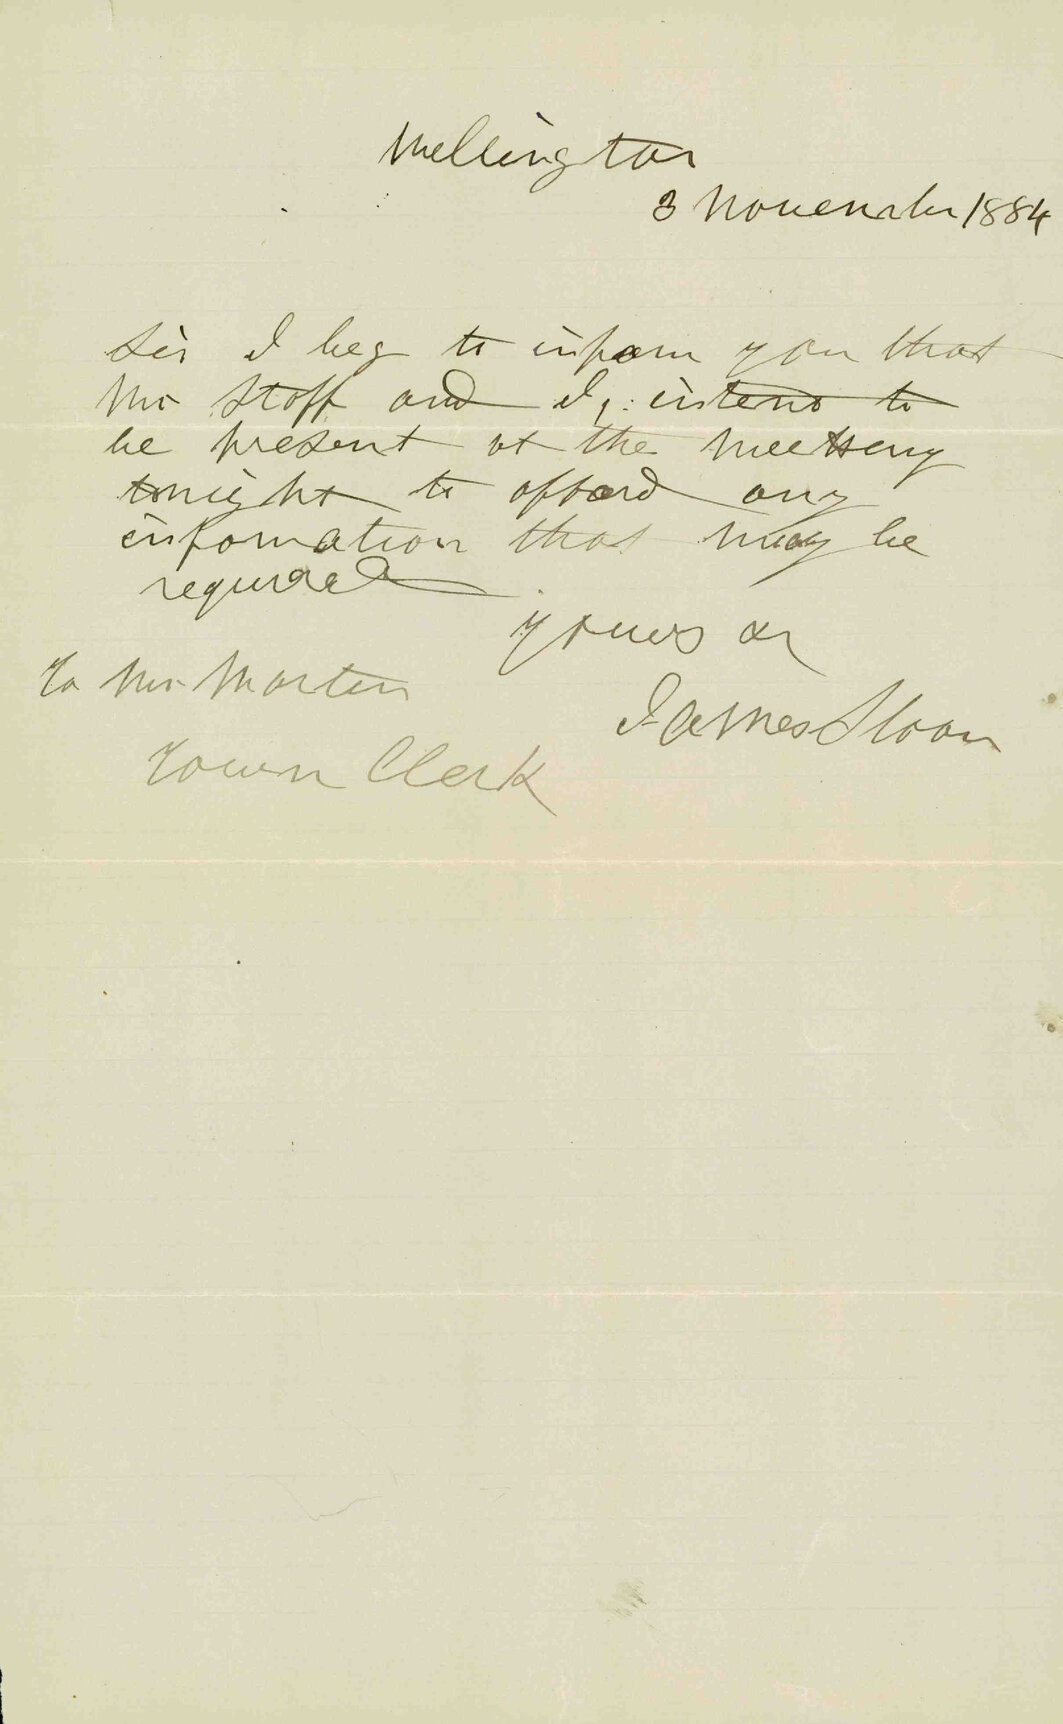 Wellington
3 November 1884
Sir I beg to inform you that
Mr Staff and I, intend to
be present at the meeting
tonight to afford any
information that may be
required
yours &c
To Mr Martin
James Sloan
Town Clerk